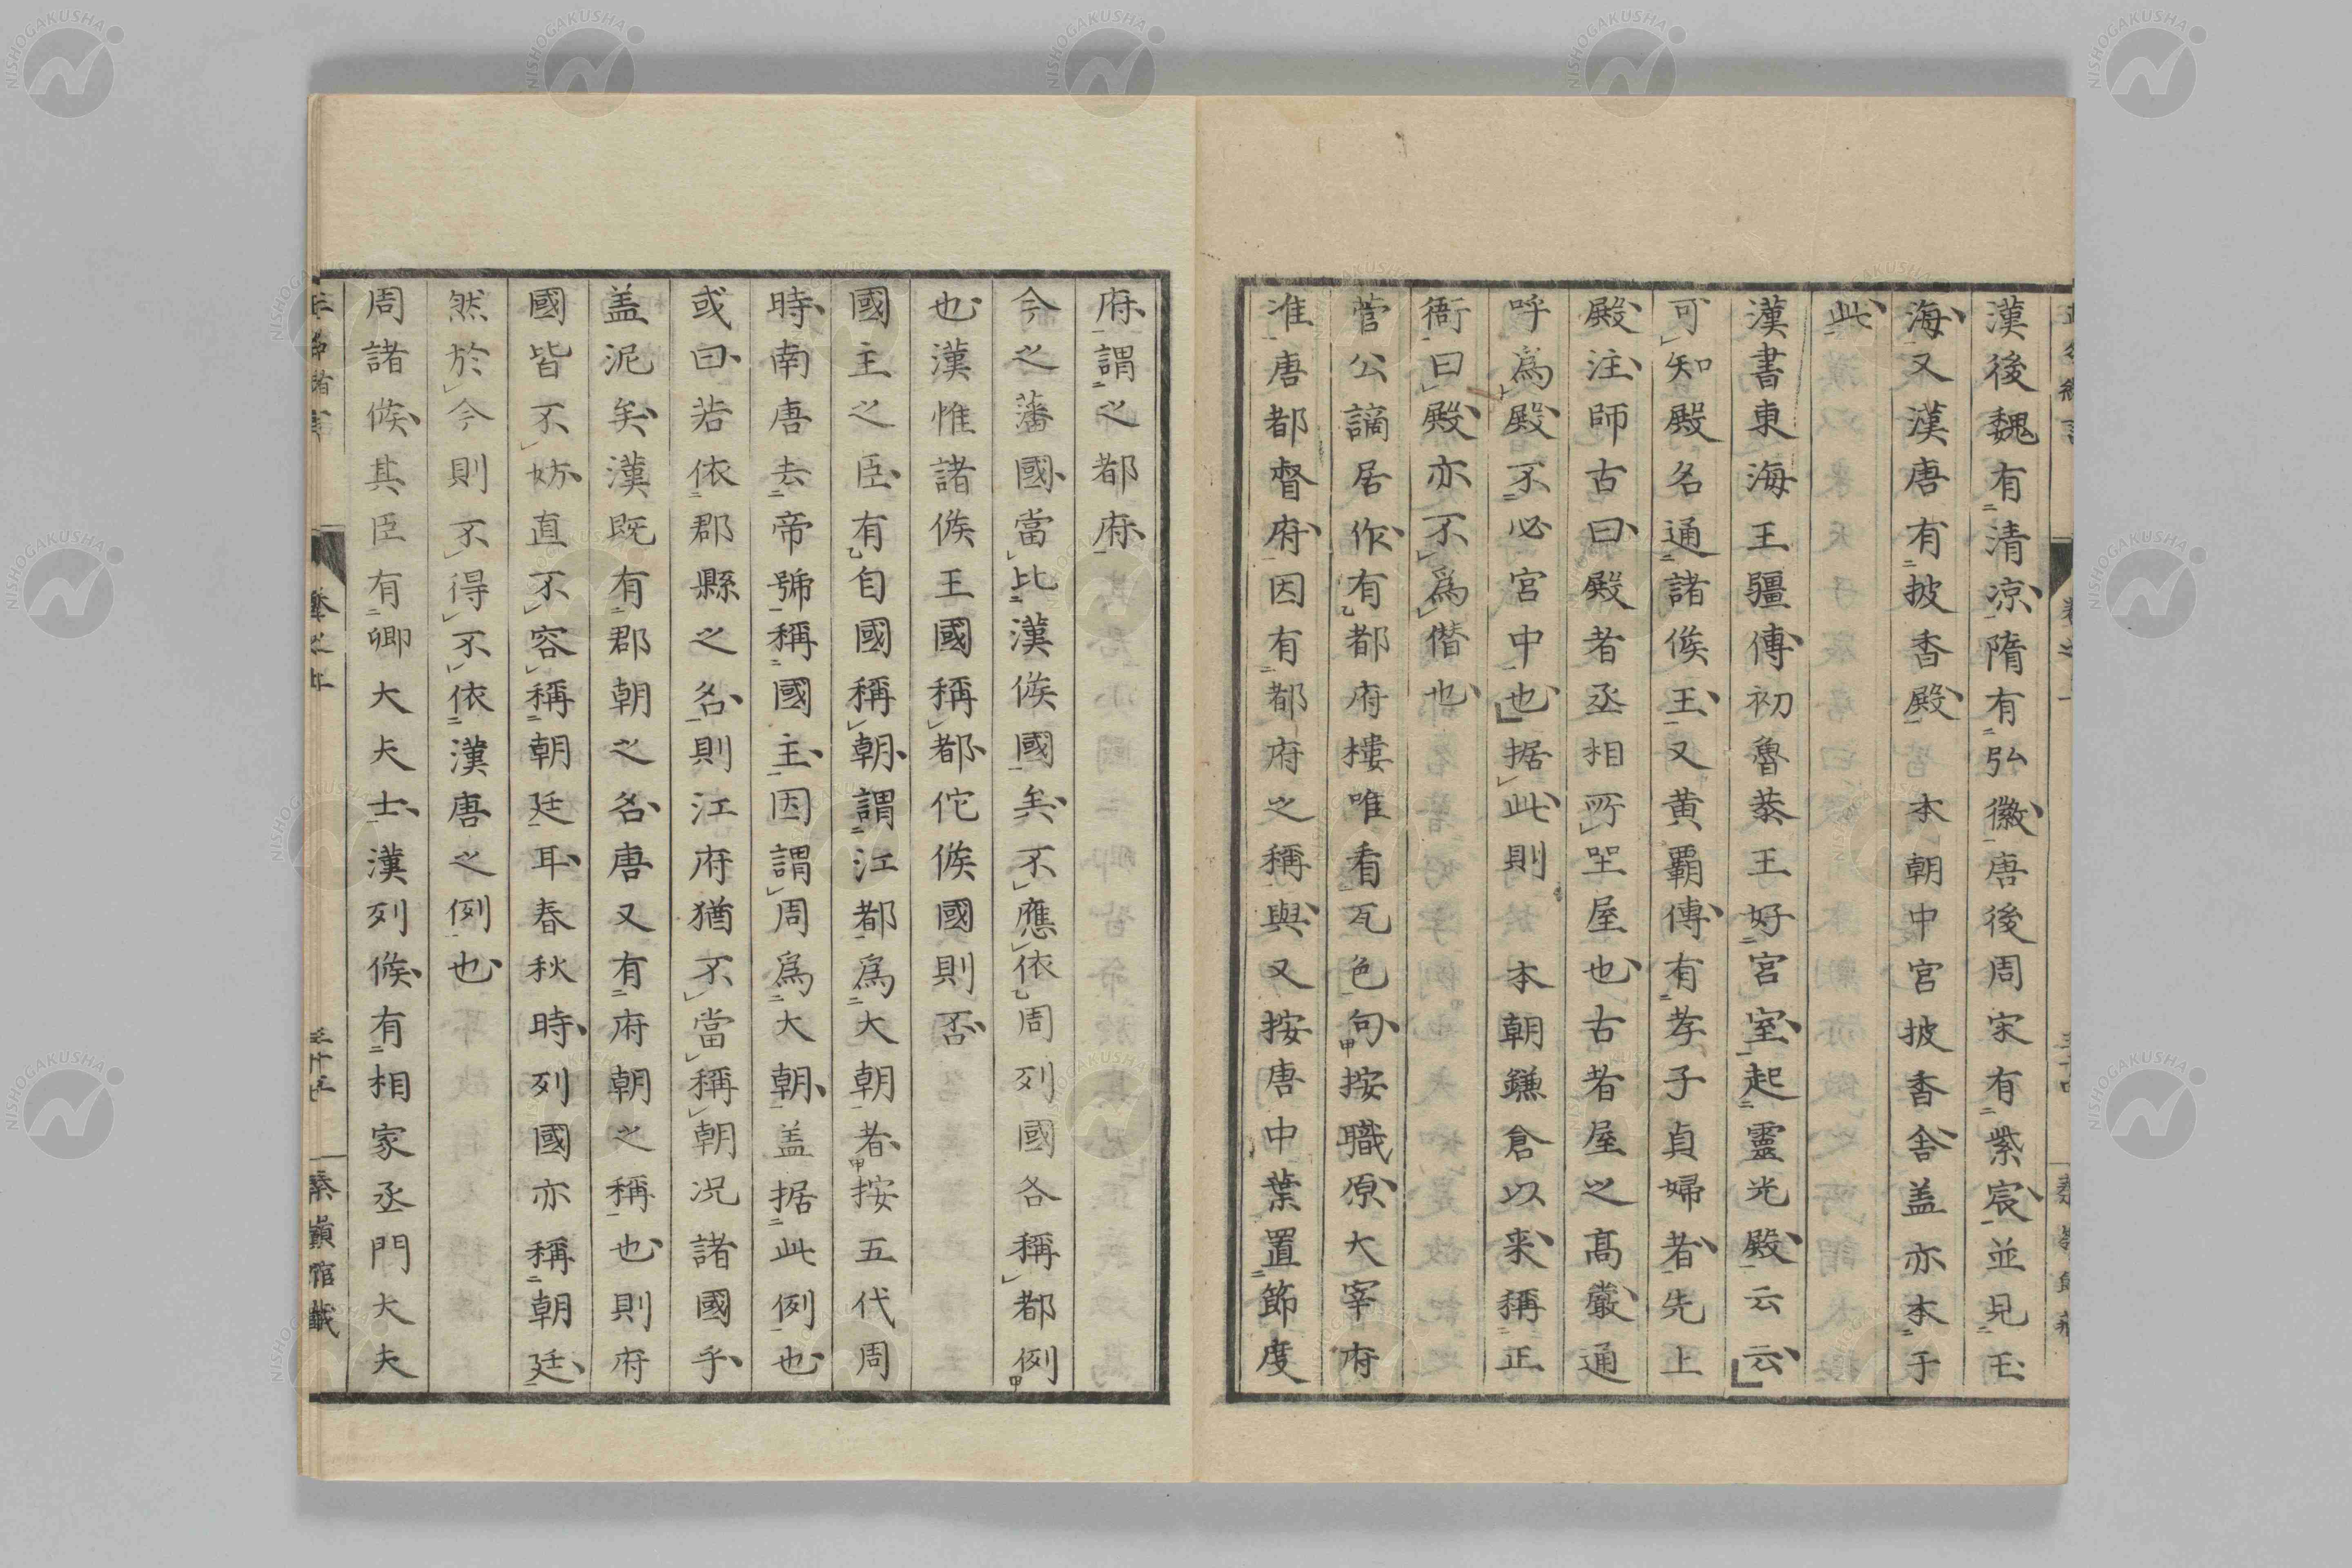 漢後魏有清涼隋有弘徽唐後周宋有紫宸並見玉
海又漢唐有披香殿 本朝中宮披香舍盖亦本于
此
漢書東海王疆傳初魯恭王好宮室起靈光殿云云
可知殿名通諸侯王又黄覇傳有孝子貞婦者先上
殿注師古曰殿者丞相所坐屋也古者屋之髙嚴通
呼爲殿不必宮中也据此則 本朝鎌倉以来稱正
衙曰殿亦不爲僭也
菅公謫居作有都府樓唯看瓦色句按職原大宰府
准唐都督府因有都府之稱與又按唐中葉置節度
府謂之都府
今之藩國當比漢侯國矣不應依周列國各稱都例
也漢惟諸侯王國稱都佗侯國則否
國主之臣有自國稱朝謂江都爲大朝者按五代周
時南唐去帝號稱國主因謂周爲大朝盖据此例也
或曰若依郡縣之名則江府猶不當稱朝况諸國乎
盖泥矣漢既有郡朝之名唐又有府朝之稱也則府
國皆不妨直不容稱朝廷耳春秋時列國亦稱朝廷
然於今則不得不依漢唐之例也
周諸侯其臣有卿大夫士漢列侯有相家丞門大夫
NISHOGAKUSHA